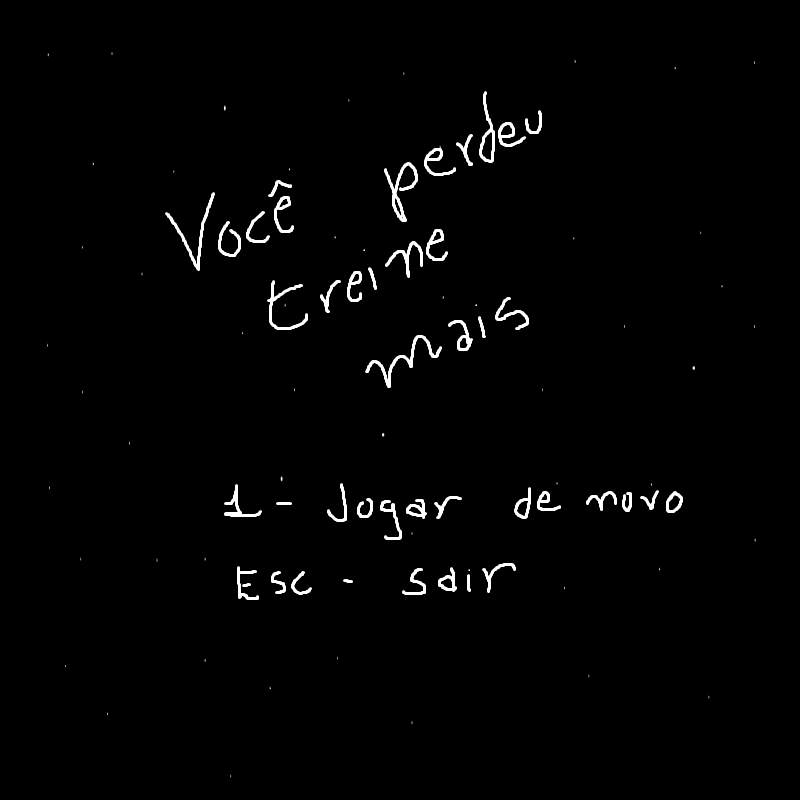 Você perdeu
treine
mais
1 - Jogar de novo
Esc - sair